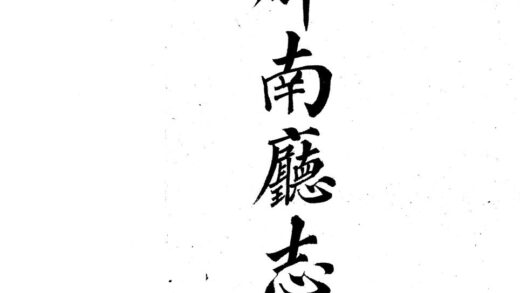 南廳志